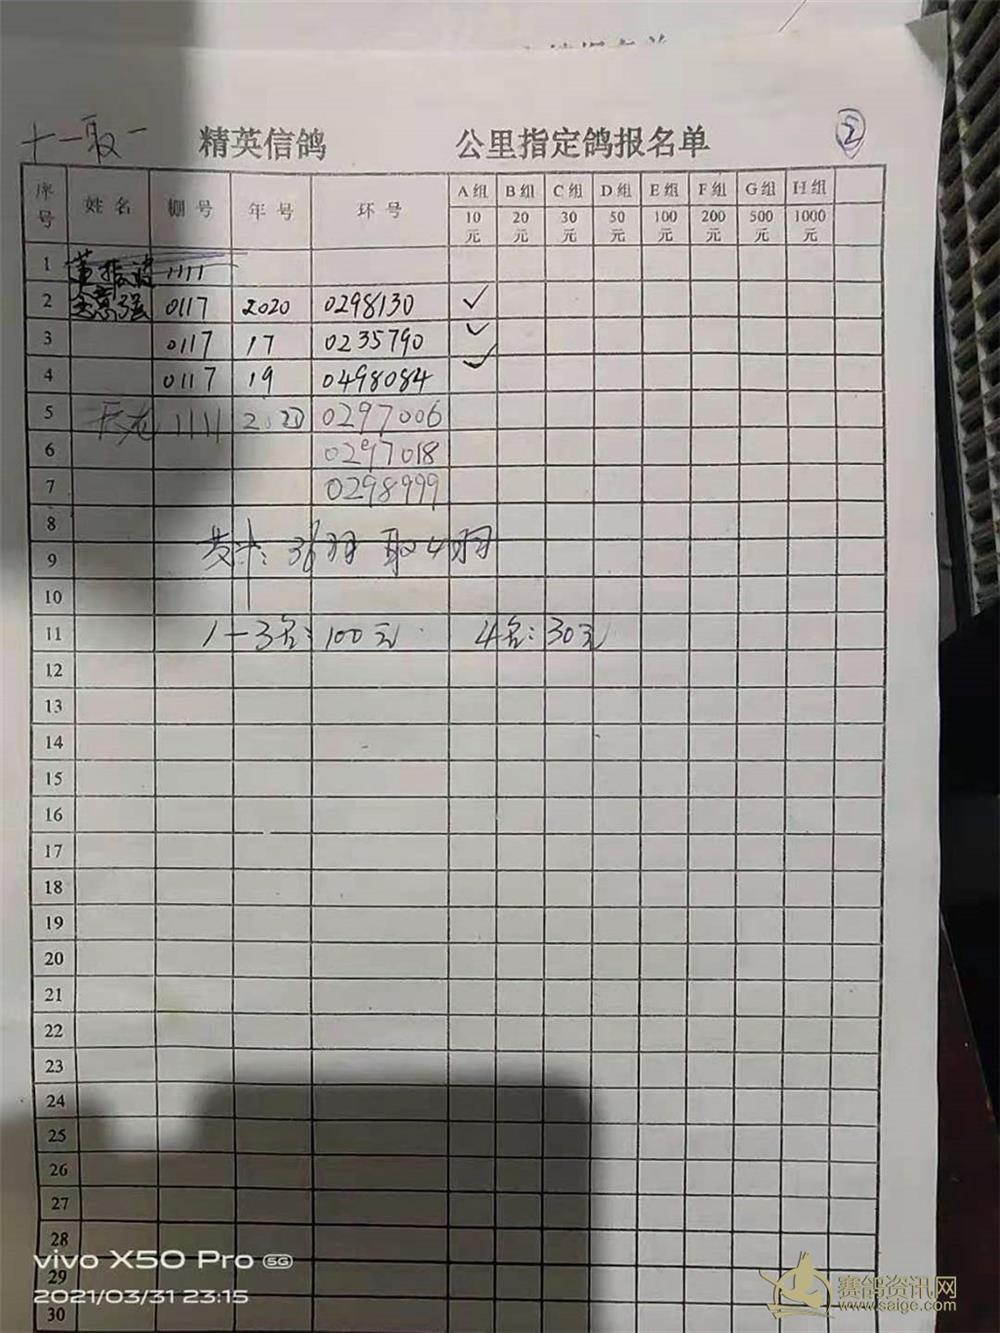 十一取一 精英信鸽 公里指定鸽报名单 2
序号 姓名 棚号 年号 环号 A组 B组 C组 D组 E组 F组 G组 H组
10元 20元 30元 50元 100元 200元 500元 1000元
1 1111
2 0117 2020 0298130 ✓
3 0117 17 0235790 ✓
4 0117 19 0498084 ✓
5 天龙 1111 2020 0297006
6 0297018
7 0298999
8
9 共计: 36羽 取4羽
10
11 1-3名: 100元 4名: 30元
12
13
14
15
16
17
18
19
20
21
22
23
24
25
26
27
28
29
30
vivo X50 Pro 5G
2021/03/31 23:15
赛鸽资讯网
www.saige.com